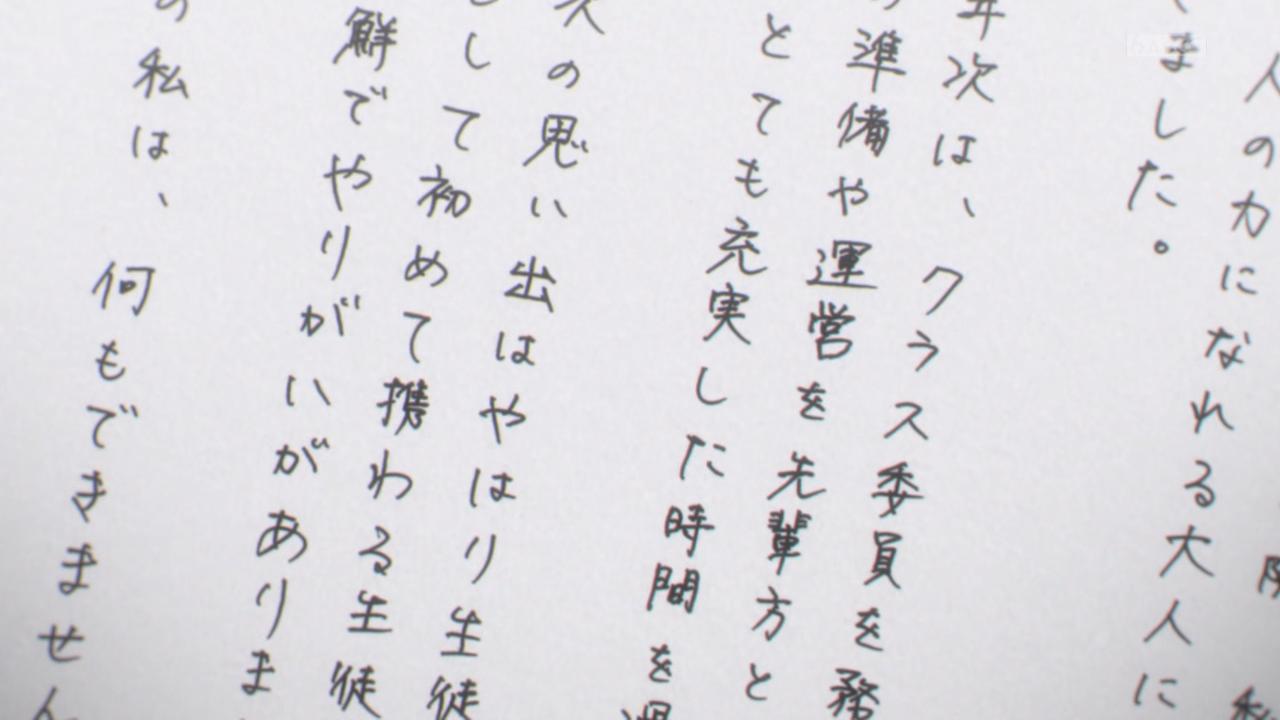 人の力になれる大人に
ました。
年次は、クラス委員を務
の準備や運営を先輩方と
とても充実した時間を過
次の思い出はやはり生徒
して初めて携わる生徒
鮮でやりがいがありま
の私は、何もできません